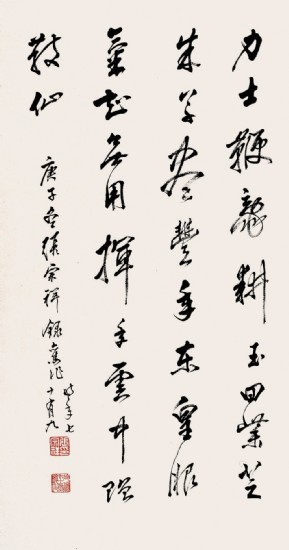 力士鞭龍耕玉田紫芝
朱草盡豐年東皇服
氣知無用揮手雲中
穀仙
庚子冬張宗祥錄舊作時年七
十有九